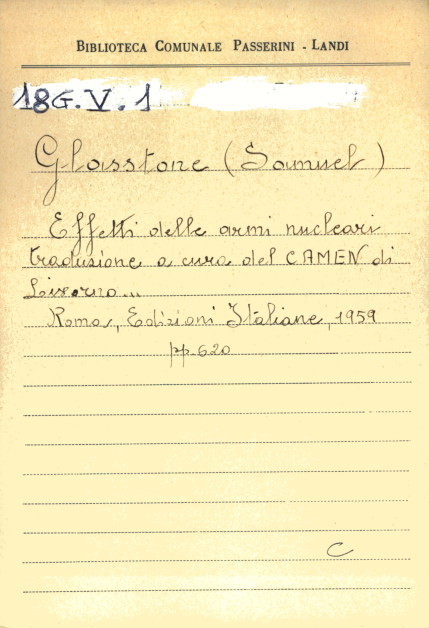 BIBLIOTECA COMUNALE PASSERINI - LANDI
18G.V.1
Glasstone (Samuel)
Effetti delle armi nucleari
traduzione a cura del CAMEN di
Livorno...
Roma, Edizioni Italiane, 1959
pp. 620
C